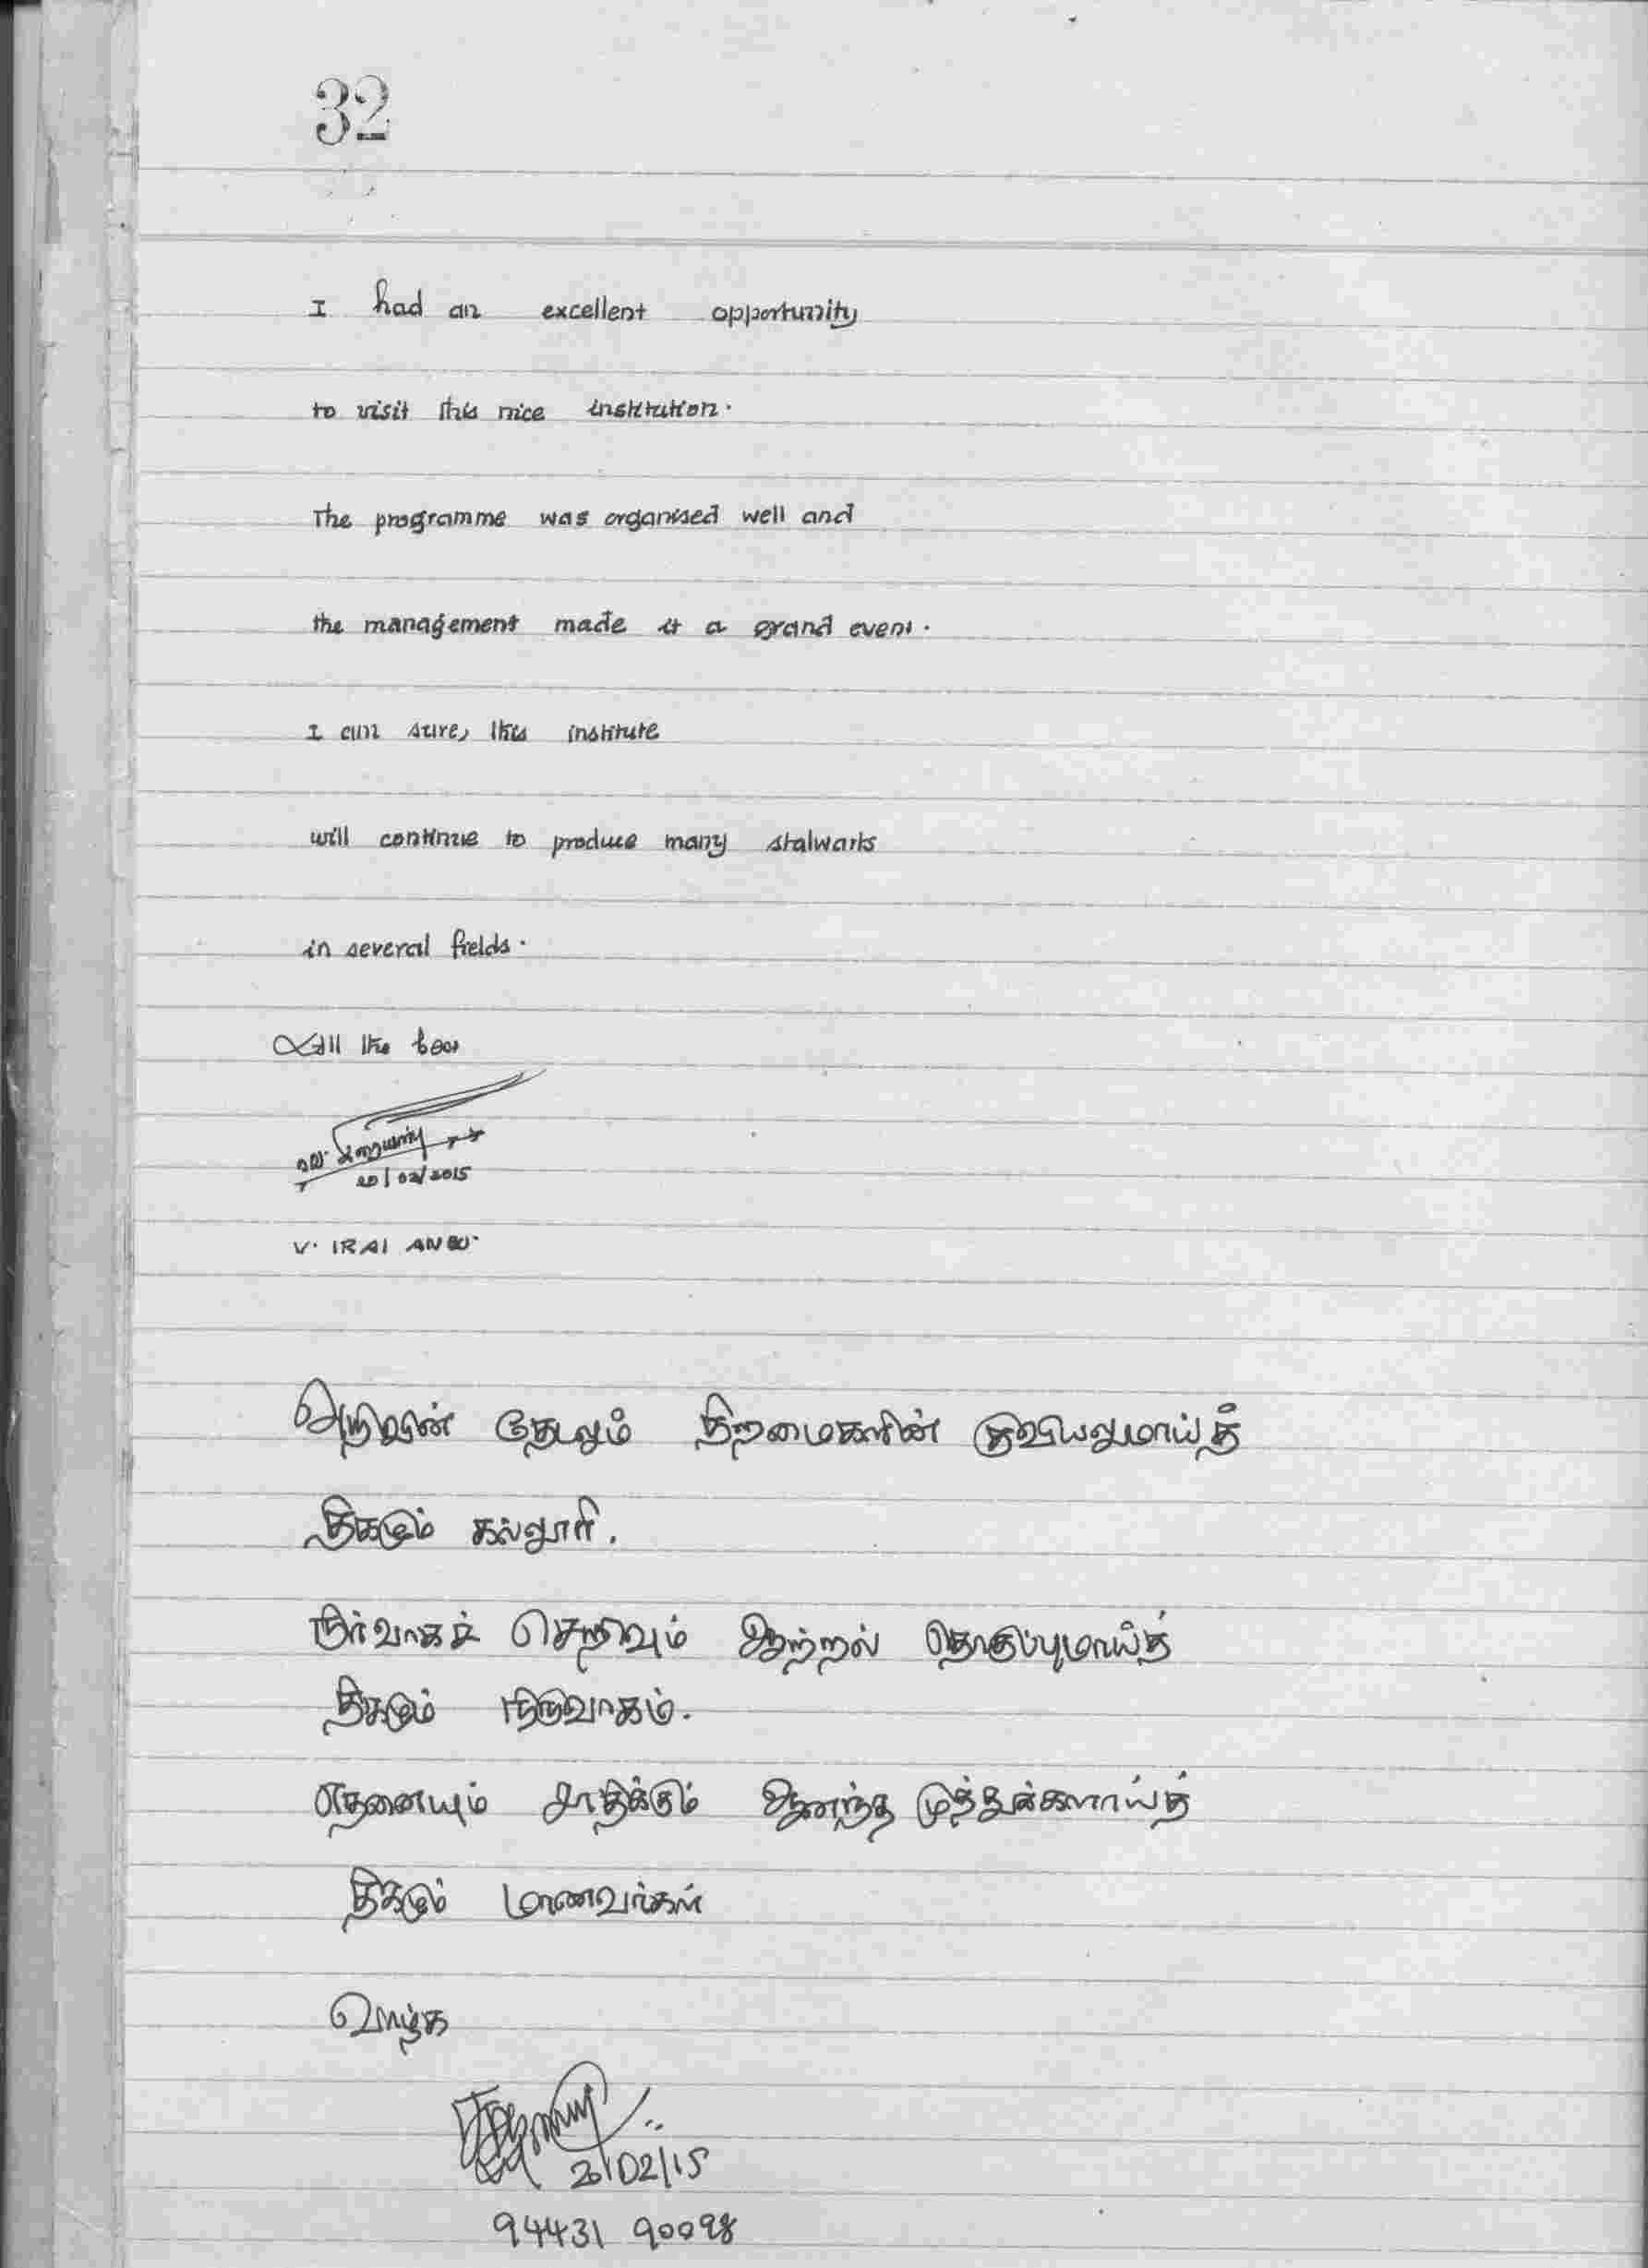 32
I had an excellent opportunity
to visit this nice institution.
The programme was organised well and
the management made it a grand event.
I am sure, this institute
will continue to produce many stalwarts
in several fields.
All the best
வெ. இறையன்பு
20/02/2015
V. IRAI ANBU.
அறிவின் தேடலும் திறமைகளின் குவியலுமாய்த்
திகழும் கல்லூரி.
நிர்வாகச் செறிவும் ஆற்றல் தொகுப்புமாய்த்
திகழும் நிருவாகம்.
எதனையும் சாதிக்கும் ஆனந்த முத்துக்களாய்த்
திகழும் மாணவர்கள்
வாழ்க
20/02/15
94431 90098